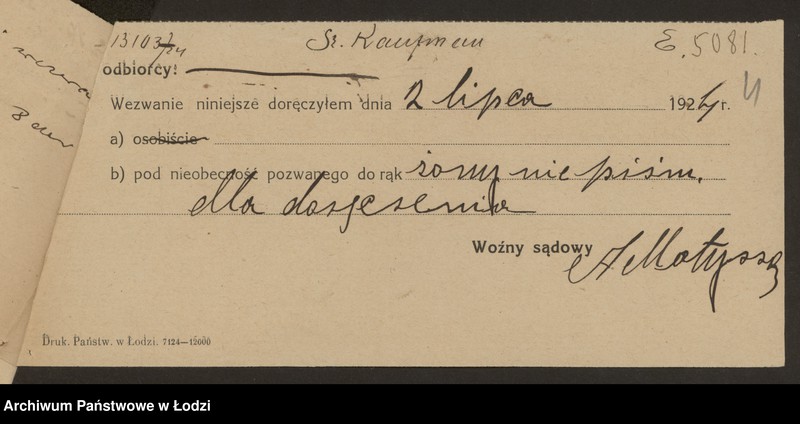 13103 7/24 Sz. Kaufman E. 5081.
odbiorcy:
Wezwanie niniejsze doręczyłem dnia 2 lipca 1924 r. 4
a) osobiście
b) pod nieobecność pozwanego do rąk żony niepiśm.
dla doręczenia
Woźny sądowy
Druk. Państw. w Łodzi. 7124—12000
Archiwum Państwowe w Łodzi